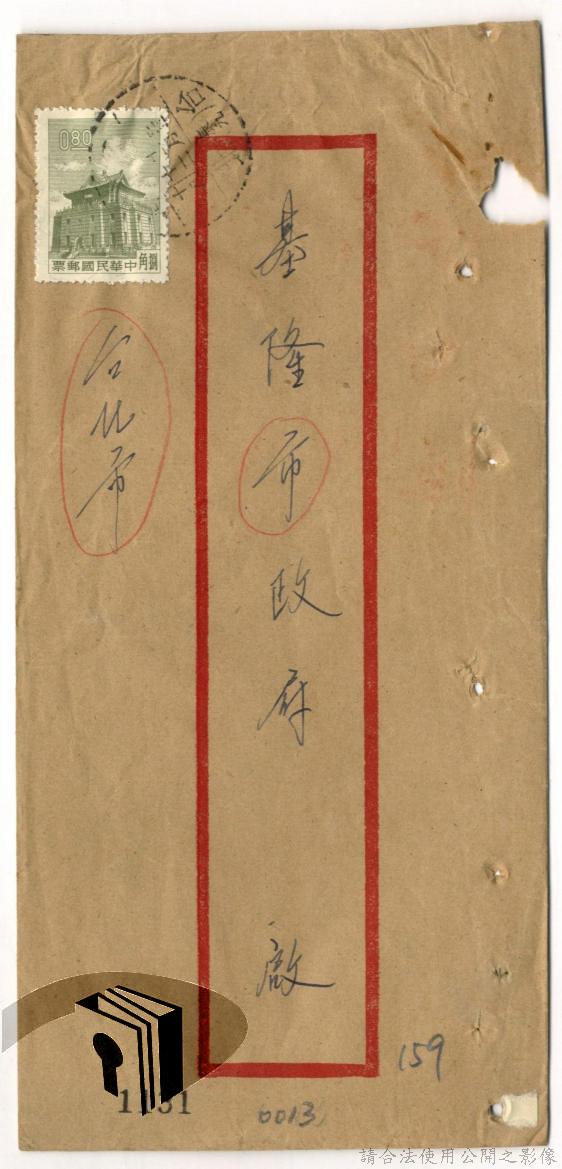 0.80
捌角
中華民國郵票
台
基隆市政府 啟
台北市
159
0013
請合法使用公開之影像